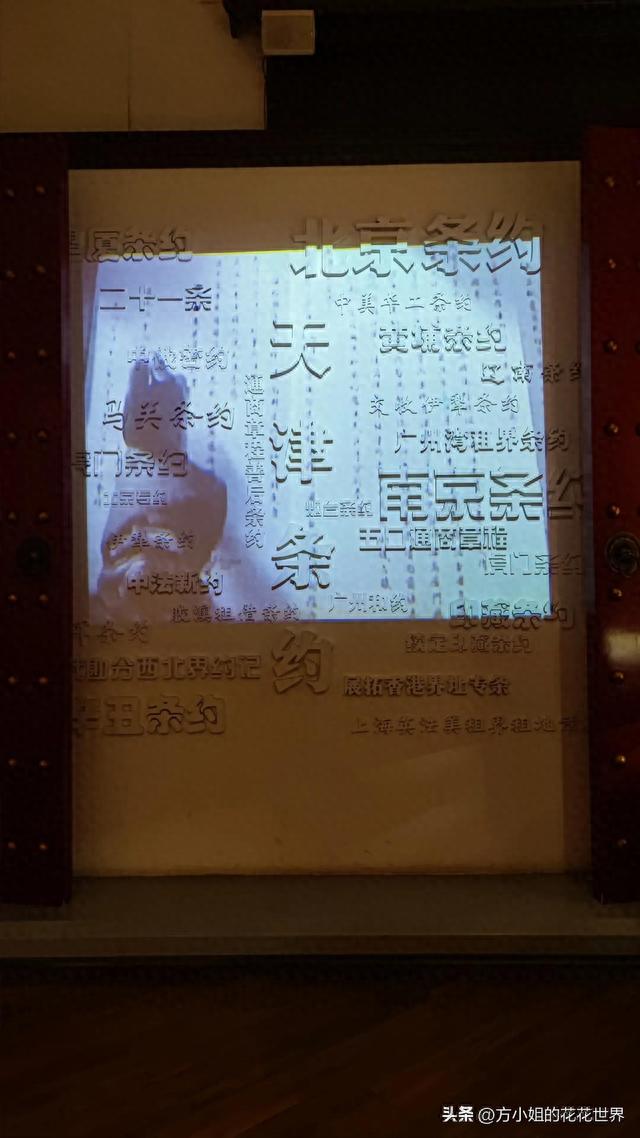 北京条约
厦条约
二十一条
中美华工条约
天津条约
黄埔条约
中俄密约
辽南条
通商章程善后条约
马关条约
广州湾租界条约
虎门条约
南京条约
烟台条约
五口通商章程
伊犁条约
虎门条约
中法新约
胶澳租借条约
广州和约
印藏条约
续定印藏条约
勘分西北界约记
展拓香港界址专条
辛丑条约
上海英法美租界租地
头条 @方小姐的花花世界